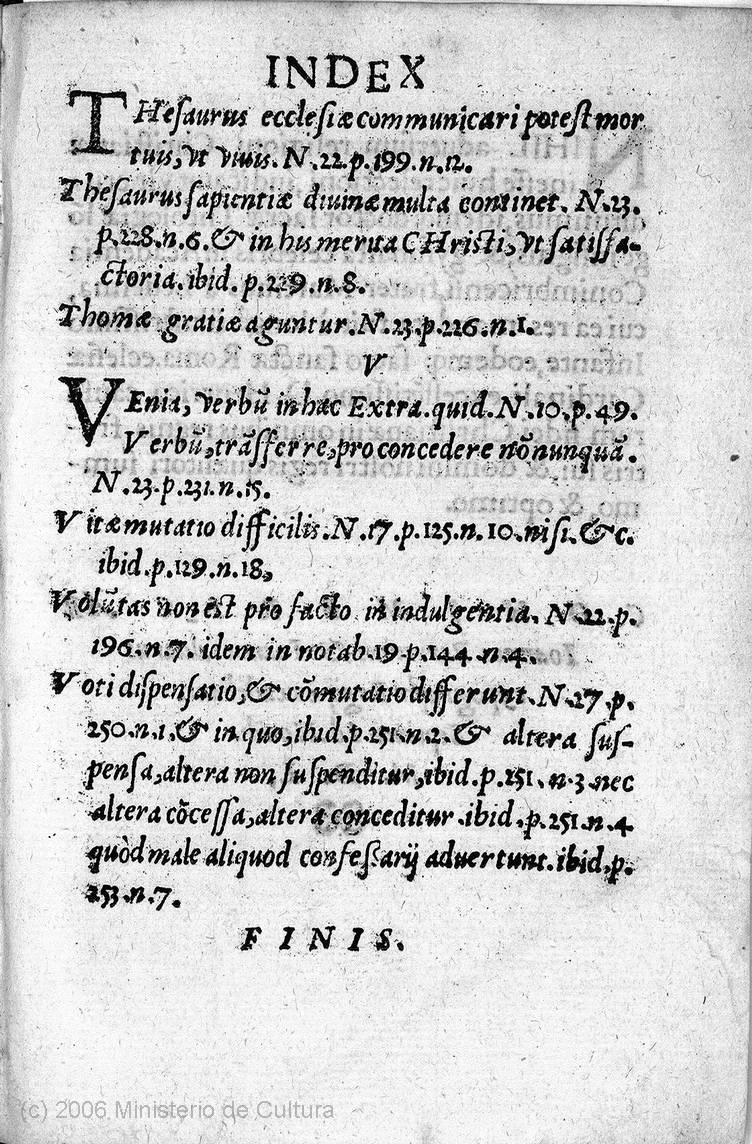 INDEX
THesaurus ecclesiæ communicari potest mor
tuis, vt viuis. N. 22. p. 199. n. 12.
Thesaurus sapientiæ diuinæ multa continet. N. 23.
p. 228. n. 6. & in his merita CHristi, vt satisfa-
ctoria. ibid. p. 229. n. 8.
Thomæ gratiæ aguntur. N. 23. p. 226. n. 1.
V
VEnia, verbũ in hac Extra. quid. N. 10. p. 49.
Verbũ, trãsferre, pro concedere nõnunquã.
N. 23. p. 231. n. 15.
Vitæ mutatio difficilis. N. 17. p. 125. n. 10. nisi. &c.
ibid. p. 129. n. 18,
Volũtas non est pro facto in indulgentia. N. 22. p.
196. n. 7. idem in notab. 19. p. 144. n. 4.
Voti dispensatio, & cõmutatio differunt. N. 27. p.
250. n. 1. & in quo, ibid. p. 251. n. 2. & altera sus-
pensa, altera non suspenditur, ibid. p. 251. n. 3. nec
altera cõcessa, altera conceditur. ibid. p. 251. n. 4
quòd male aliquod confessarij aduertunt. ibid. p.
253. n. 7.
FINIS.
(c) 2006 Ministerio de Cultura